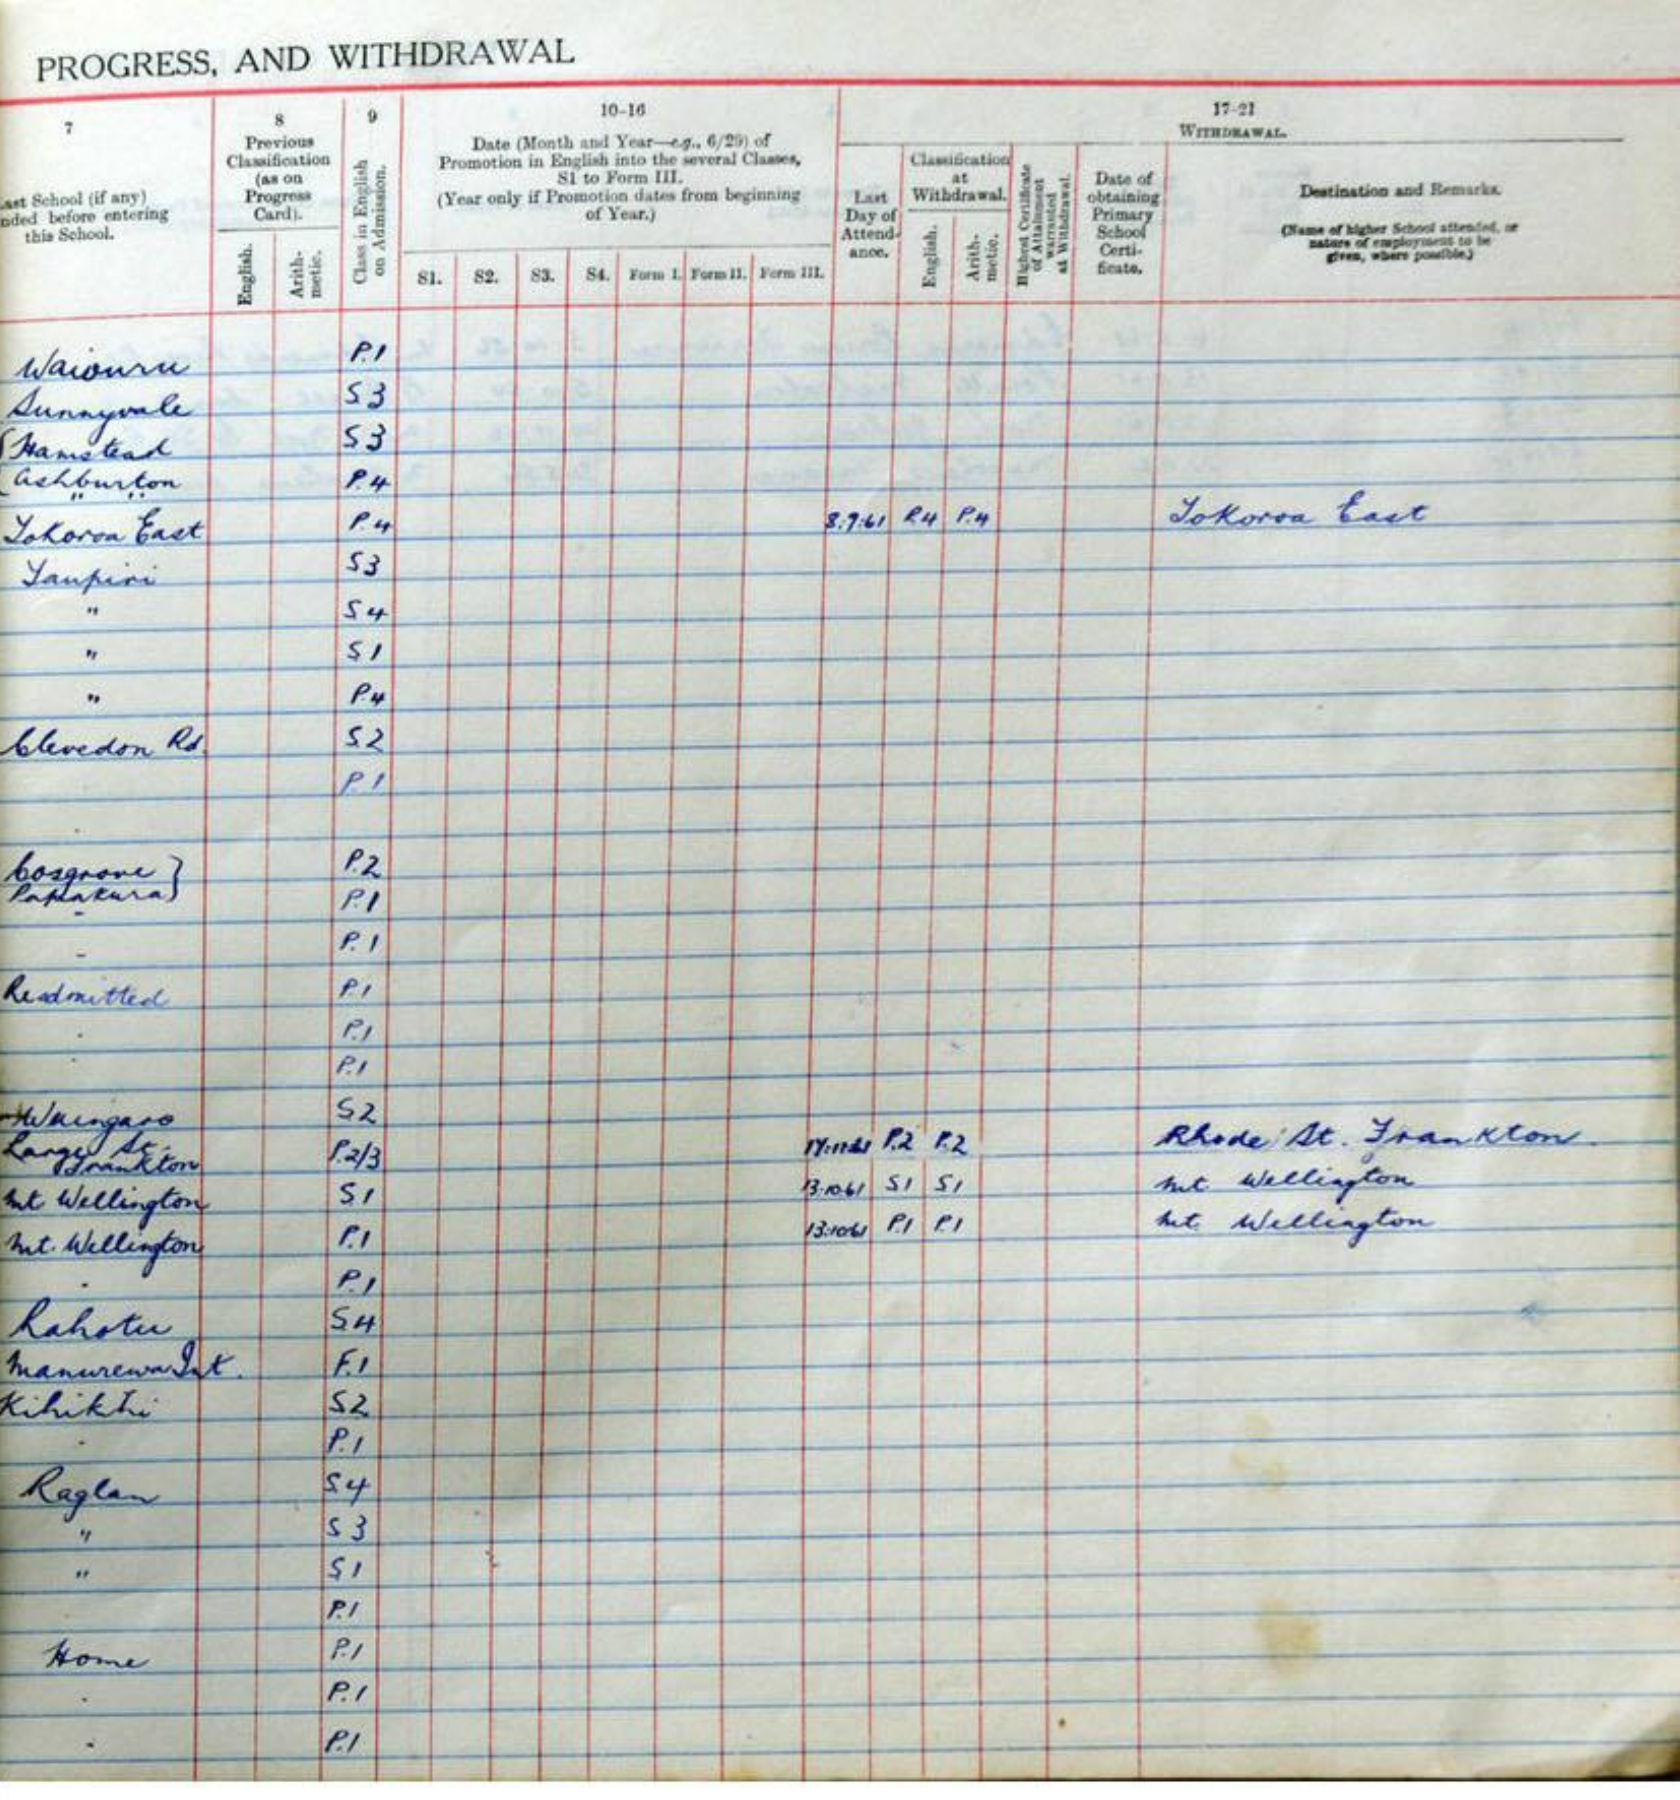 PROGRESS, AND WITHDRAWAL
7
ast School (if any)
nded before entering
this School.
8
Previous
Classification
(as on
Progress
Card).
English.
Arith-
metic.
9
Class in English
on Admission.
10-16
Date (Month and Year—e.g., 6/29) of
Promotion in English into the several Classes,
S1 to Form III.
(Year only if Promotion dates from beginning
of Year.)
S1. S2. S3. S4. Form I. Form II. Form III.
17-21
WITHDRAWAL.
Last
Day of
Attend-
ance.
Classification
at
Withdrawal.
English.
Arith-
metic.
Highest Certificate
of Attainment
warranted
at Withdrawal.
Date of
obtaining
Primary
School
Certi-
ficate.
Destination and Remarks.
(Name of higher School attended, or
nature of employment to be
given, where possible.)
Waiouru P.1
Sunnyvale S3
Hamstead S3
Ashburton P.4
Tokoroa East P.4 8.9.61 P.4 P.4 Tokoroa East
Taupiri S3
" S4
" S1
" P.4
Clevedon Rd. S.2
P.1
Cosgrove } P.2
Papakura } P.1
P.1
Readmitted P.1
P.1
P.1
Waingaro S2
St. P.2/3 P.2 P.2 Rhode St. Frankton
Frankton
Mt Wellington S1 13.10.61 S1 S1 Mt Wellington
Mt. Wellington P.1 13.10.61 P.1 P.1 Mt. Wellington
P.1
Rahotu S4
Manurewa Int. F.1
Kihikihi S2
P.1
Raglan S4
" S3
" S1
P.1
Home P.1
P.1
P.1